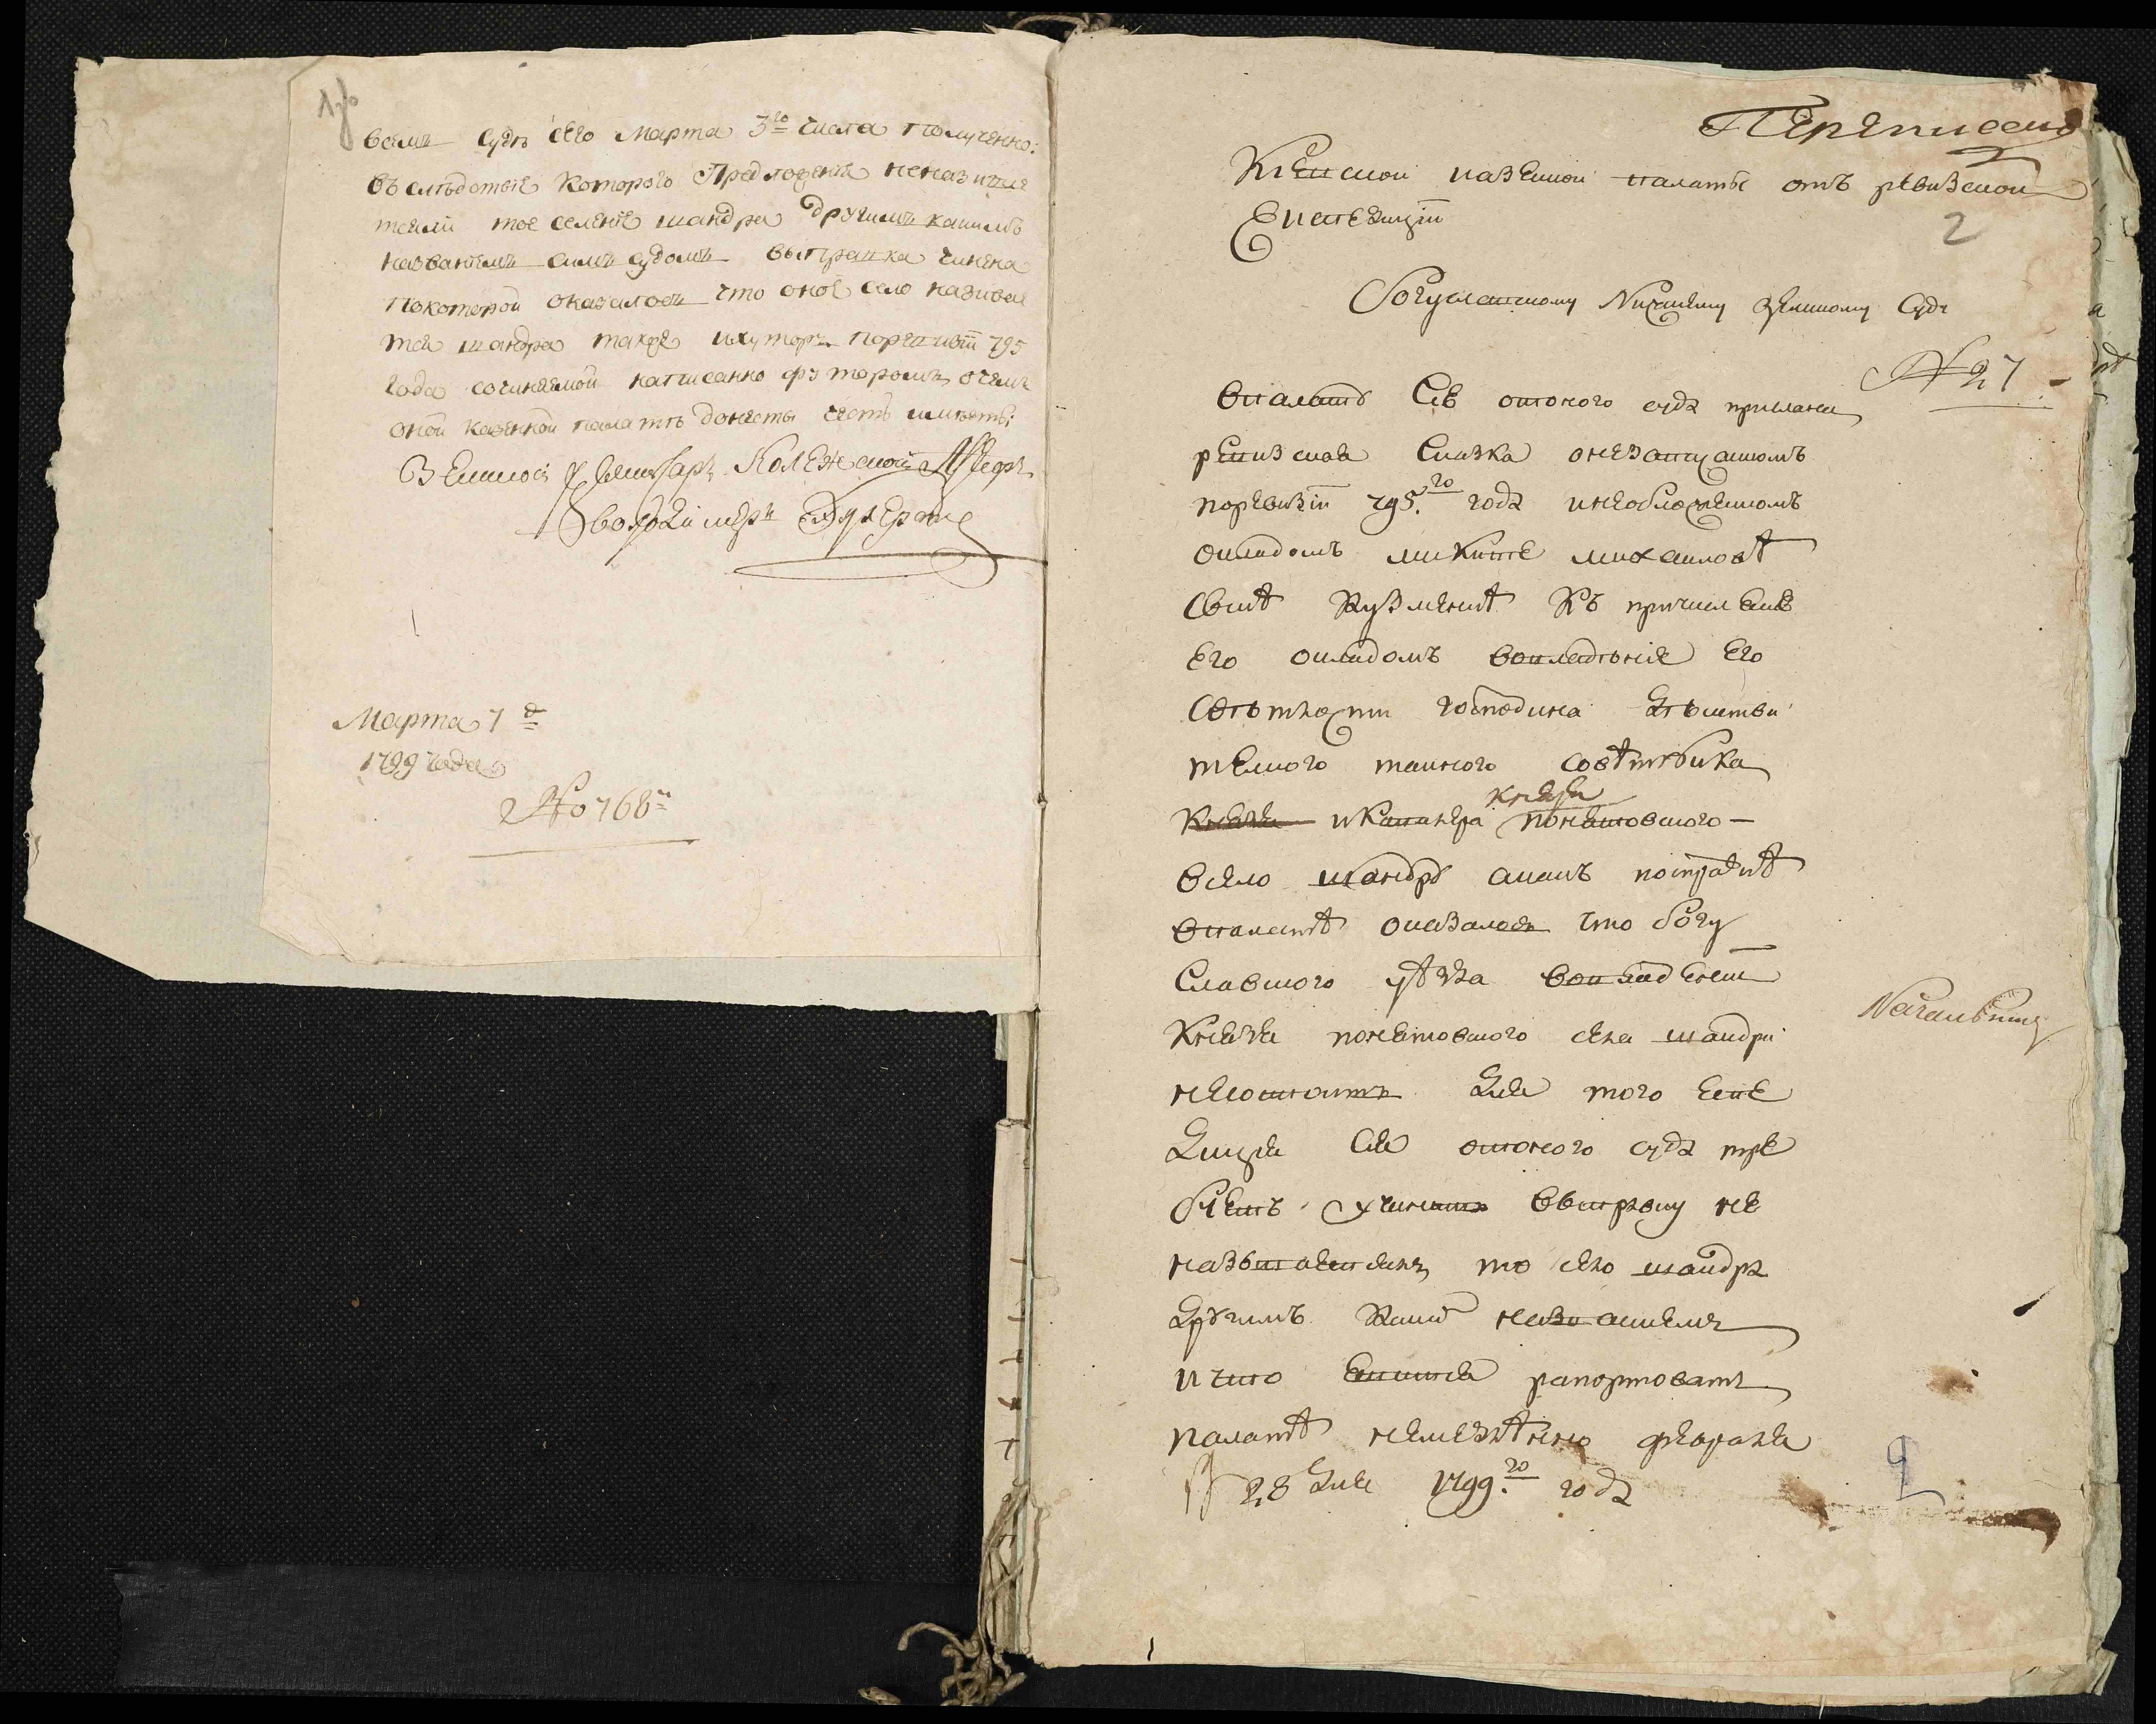 1об
всемъ судѣ сего Марта 3го числа полученно:
въ слѣдствіе которого Предложеніе неназивае
тсяли тое селеніе шандра другимъ какимъ
названіемъ симъ судомъ выправка чинена
покоторой оказалось что оное село называе
тся шандра также ихуторъ поревизіи 795
года сочиняемой написанно футоромъ, очемъ
оной казенной палатѣ донесть честь имѣетъ;
Земской Комисаръ Колежской
Марта 7 д
1799 года
№ 768й
Переписано
Кіевской казенной палаты отъ ревизской
Експедиціи
2
Богуславскому Нижнему земскому Суду
№ 27
Впалату Сію отоного суда прислана
ревизская Сказка онезаписанномъ
поревизіи 795го года инеобложенномъ
окладомъ миките михайловѣ
сынѣ Кузменкѣ Къ причисленію
Его окладомъ вовладѣніе Его
Свѣтлости господина дѣйстви
телного тайного совѣтника
Князя иКавалера князя понятовского
Всело шандру акакъ посправкѣ
впалатѣ оказалось что богу
Славского уѣзда вовладѣніи
Князя понятовского села шандри
несостоитъ Для того Експе
Диція Сія отоного суда тре
буетъ учинить выправку не
называетсяли то село шандра
Другимъ какимъ названіемъ
ичто явится рапортовать
палатѣ немедлѣнно февраля
28 Дня 1799го года